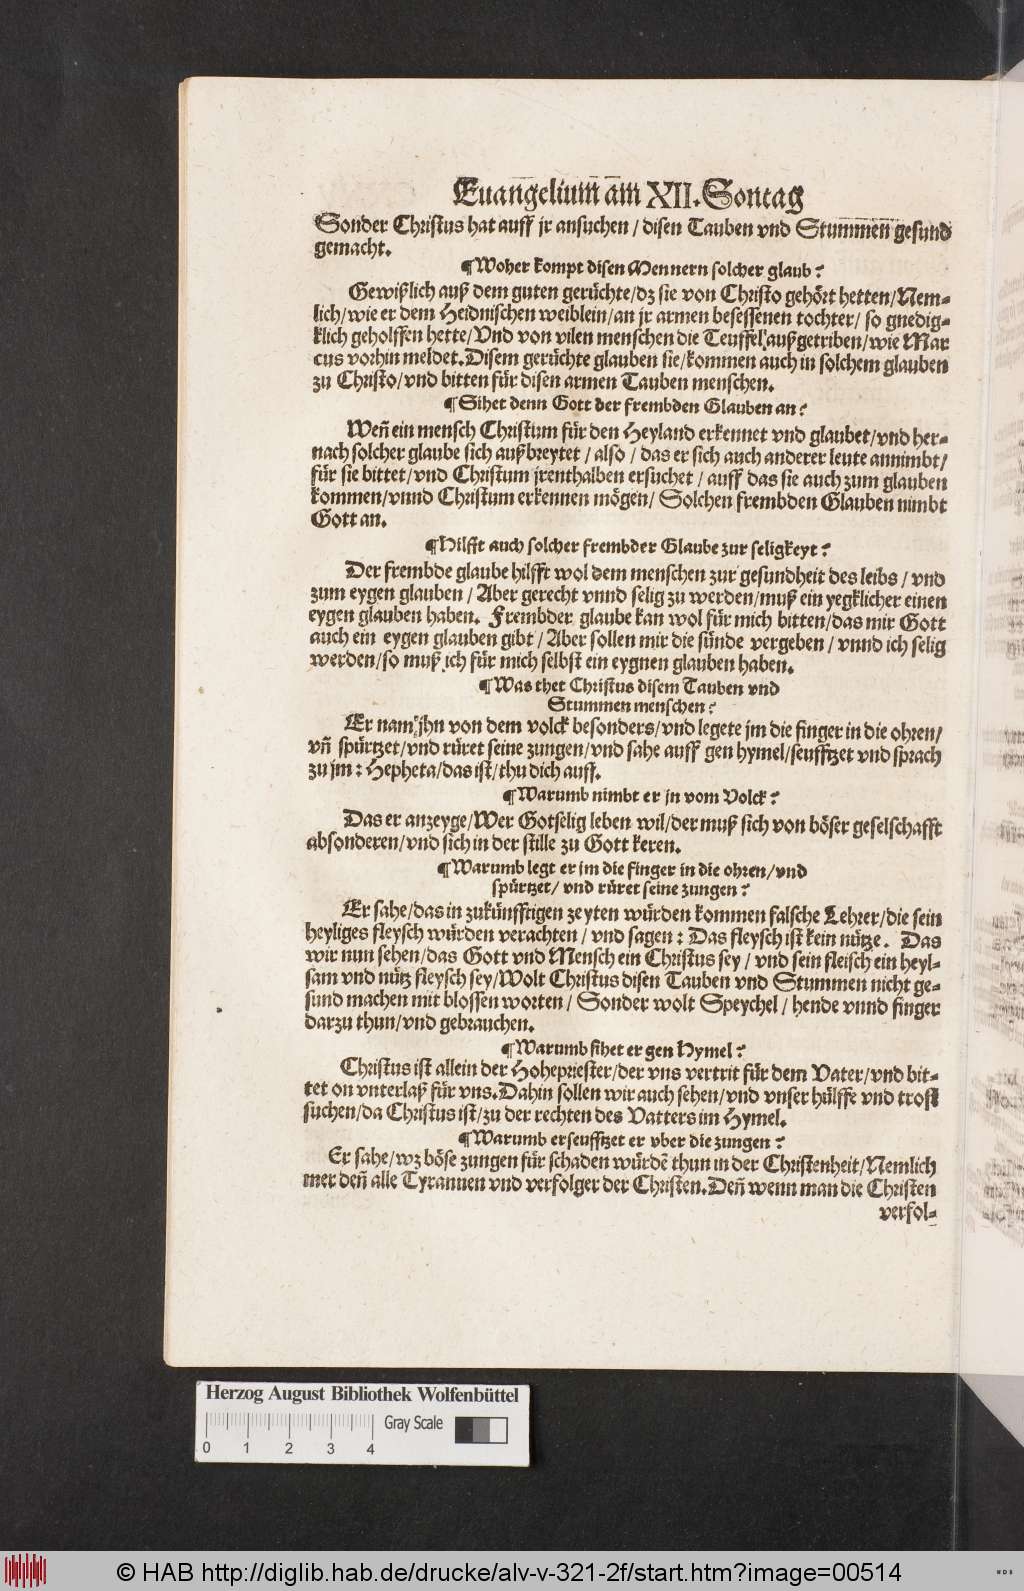 Euangelium am XII. Sontag
Sonder Christus hat auff jr ansuchen / disen Tauben vnd Stummen gesund
gemacht.
¶ Woher kompt disen Mennern solcher glaub?
Gewißlich auß dem guten gerüchte/dz sie von Christo gehört hetten/Nem-
lich/wie er dem Heidnischen weiblein/an jr armen besessenen tochter/ so gnedig-
klich geholffen hette/Vnd von vilen menschen die Teuffel außgetriben/wie Mar
cus vorhin meldet. Disem gerüchte glauben sie/kommen auch in solchem glauben
zu Christo/vnd bitten für disen armen Tauben menschen.
¶ Sihet denn Gott der frembden Glauben an?
Weñ ein mensch Christum für den Heyland erkennet vnd glaubet/vnd her-
nach solcher glaube sich außbreytet / also / das er sich auch anderer leute annimbt/
für sie bittet/vnd Christum jrenthalben ersuchet / auff das sie auch zum glauben
kommen/vnnd Christum erkennen mögen/ Solchen frembden Glauben nimbt
Gott an.
¶ Hilfft auch solcher frembder Glaube zur seligkeyt?
Der frembde glaube hilfft wol dem menschen zur gesundheit des leibs / vnd
zum eygen glauben / Aber gerecht vnnd selig zu werden/muß ein yegklicher einen
eygen glauben haben. Frembder glaube kan wol für mich bitten/das mir Gott
auch ein eygen glauben gibt / Aber sollen mir die sünde vergeben / vnnd ich selig
werden/so muß ich für mich selbst ein eygnen glauben haben.
¶ Was thet Christus disem Tauben vnd
Stummen menschen?
Er nam jhn von dem volck besonders/vnd legete jm die finger in die ohren/
vñ spürtzet/vnd rüret seine zungen/vnd sahe auff gen hymel/seufftzet vnd sprach
zu jm: Hepheta/das ist/thu dich auff.
¶ Warumb nimbt er jn vom Volck?
Das er anzeyge/Wer Gotselig leben wil/der muß sich von böser geselschafft
absonderen/vnd sich in der stille zu Gott keren.
¶ Warumb legt er jm die finger in die ohren/vnd
spürtzet/ vnd rüret seine zungen?
Er sahe/das in zukünfftigen zeyten würden kommen falsche Lehrer/die sein
heyliges fleysch würden verachten / vnd sagen: Das fleysch ist kein nütze. Das
wir nun sehen/das Gott vnd Mensch ein Christus sey / vnd sein fleisch ein heyl-
sam vnd nütz fleysch sey/Wolt Christus disen Tauben vnd Stummen nicht ge-
sund machen mit blossen worten / Sonder wolt Speychel / hende vnnd finger
darzu thun/vnd gebrauchen.
¶ Warumb sihet er gen Hymel?
Christus ist allein der Hohepriester/der vns vertrit für dem Vater/vnd bit-
tet on vnterlaß für vns. Dahin sollen wir auch sehen/vnd vnser hülffe vnd trost
suchen/da Christus ist/zu der rechten des Vatters im Hymel.
¶ Warumb erseufftzet er vber die zungen?
Er sahe/wz böse zungen für schaden würdē thun in der Christenheit/Nemlich
mer deñ alle Tyrannen vnd verfolger der Christen. Deñ wenn man die Christen
verfol-
Herzog August Bibliothek Wolfenbüttel
Gray Scale
0 1 2 3 4
© HAB http://diglib.hab.de/drucke/alv-v-321-2f/start.htm?image=00514